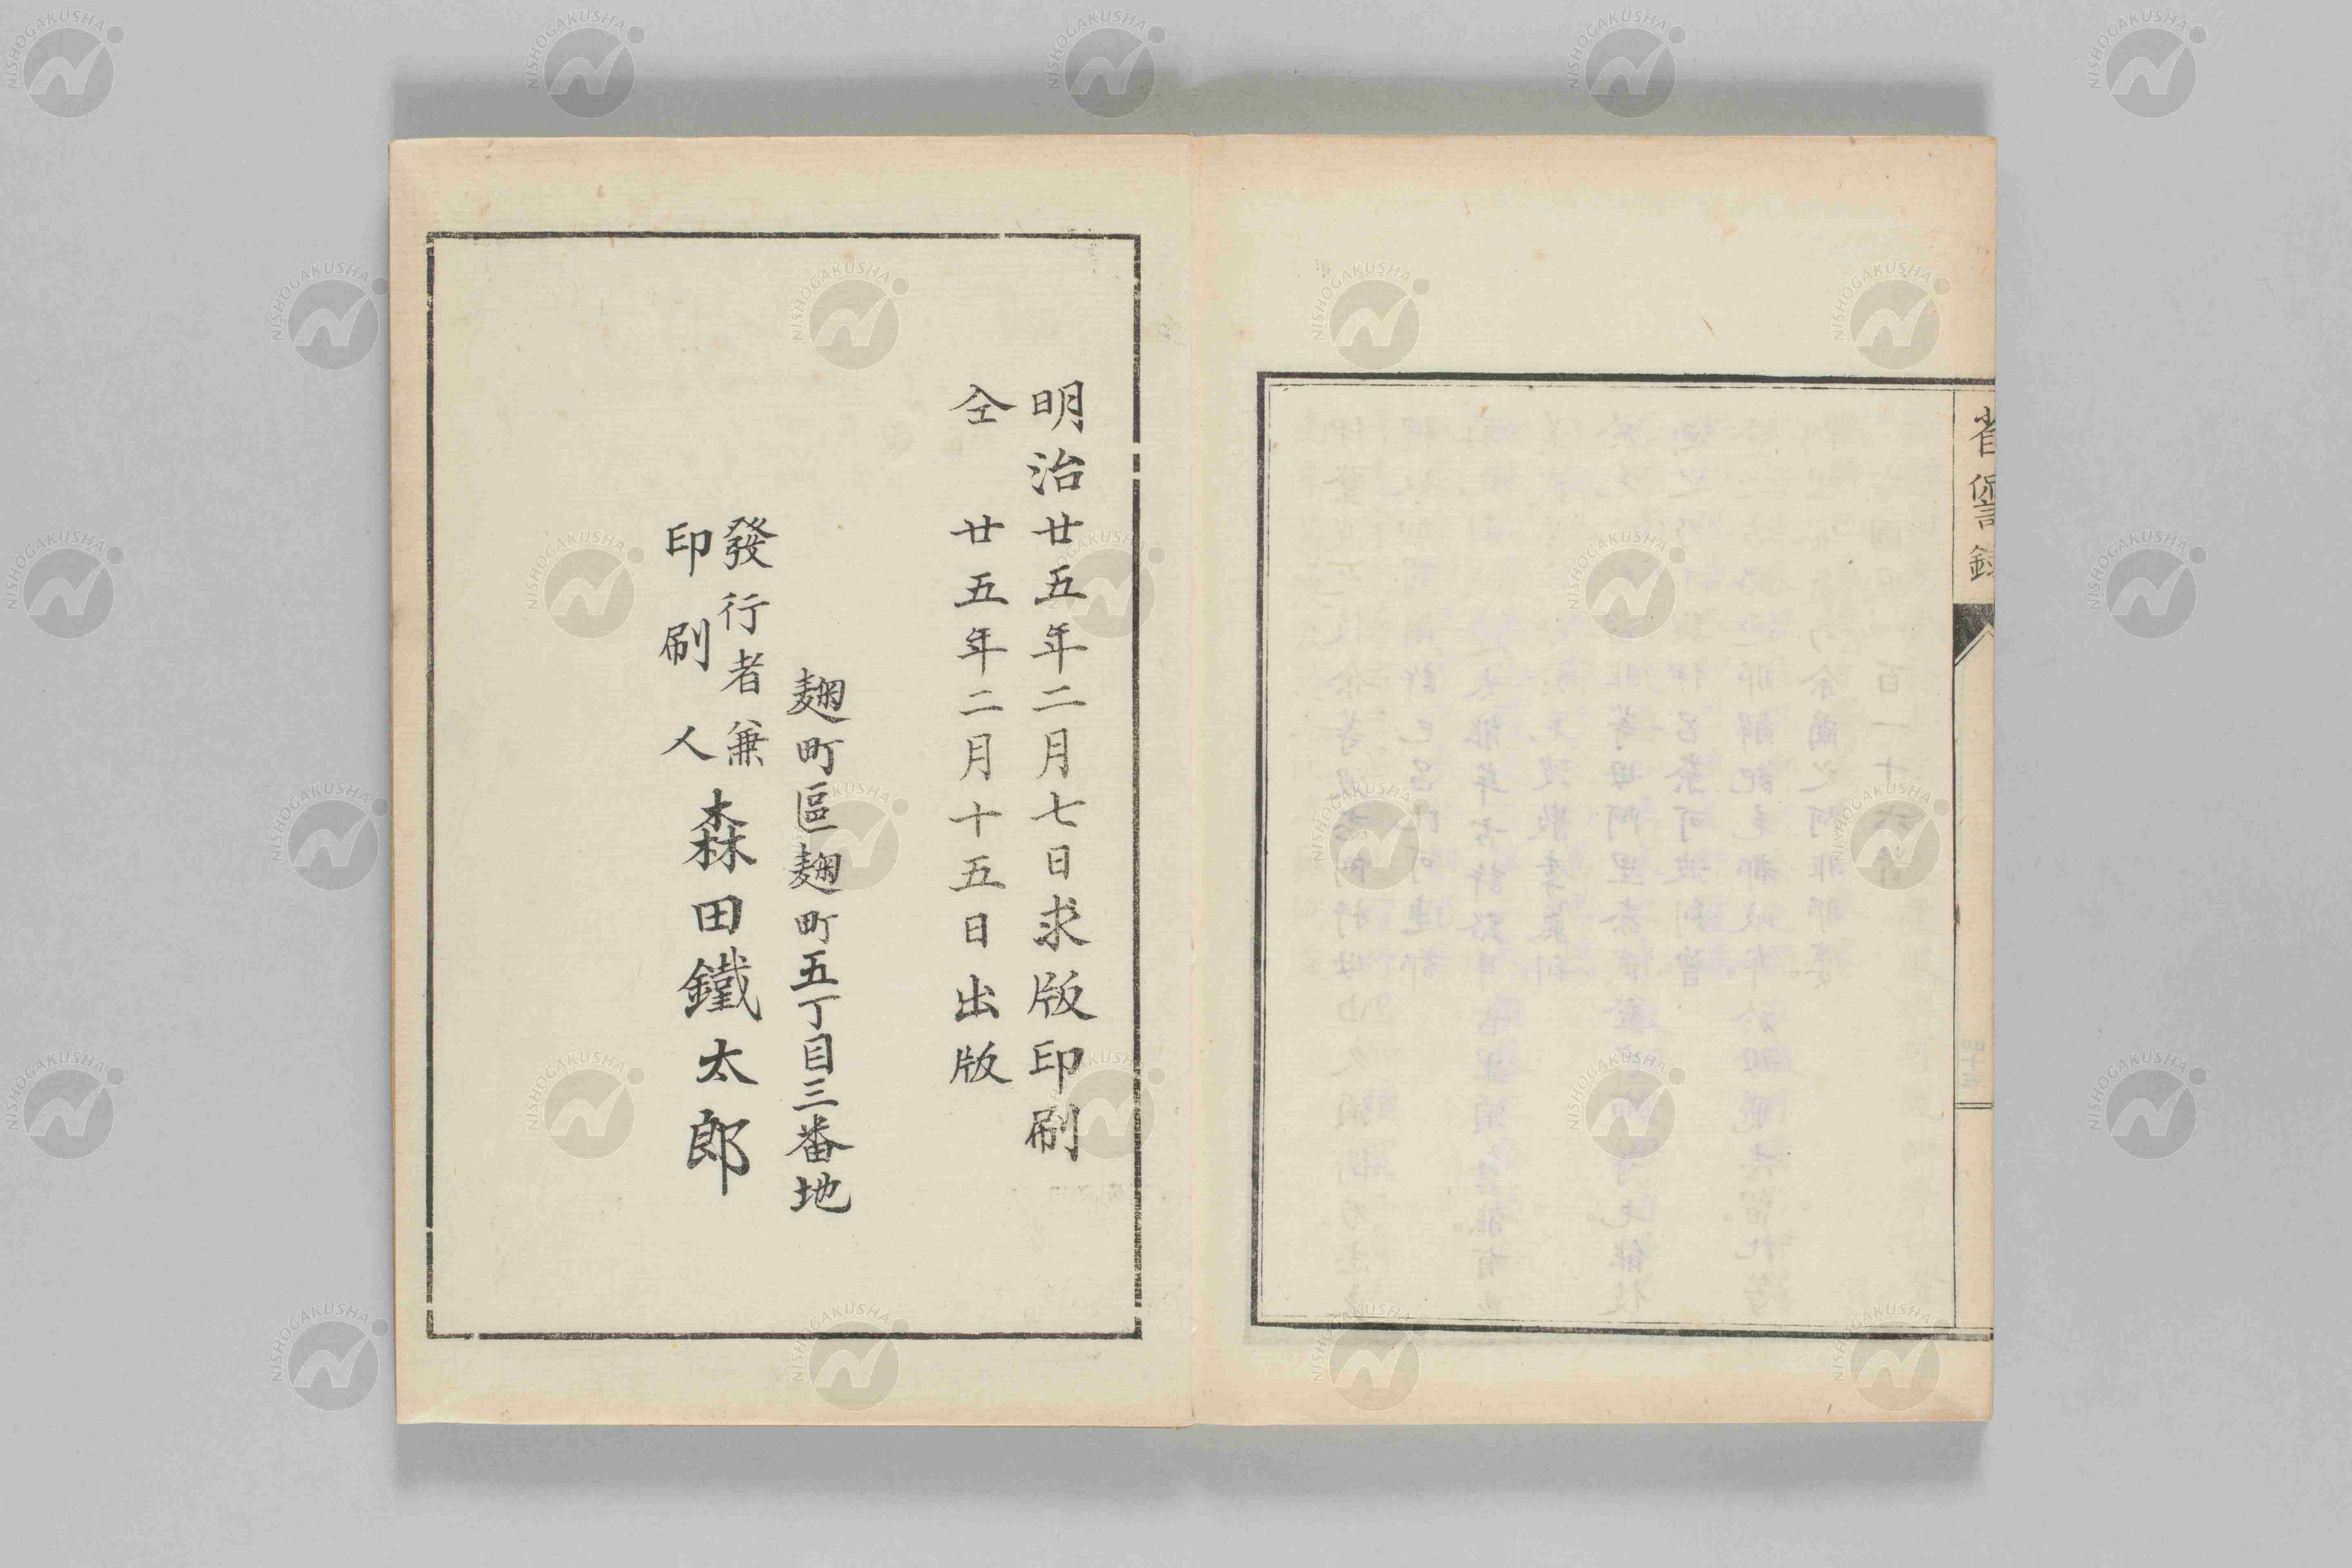 省諐録
明治廿五年二月七日求版印刷
仝　廿五年二月十五日出版
麹町區麹町五丁目三番地
發行者兼
印刷人
森田鐵太郎
NISHOGAKUSHA